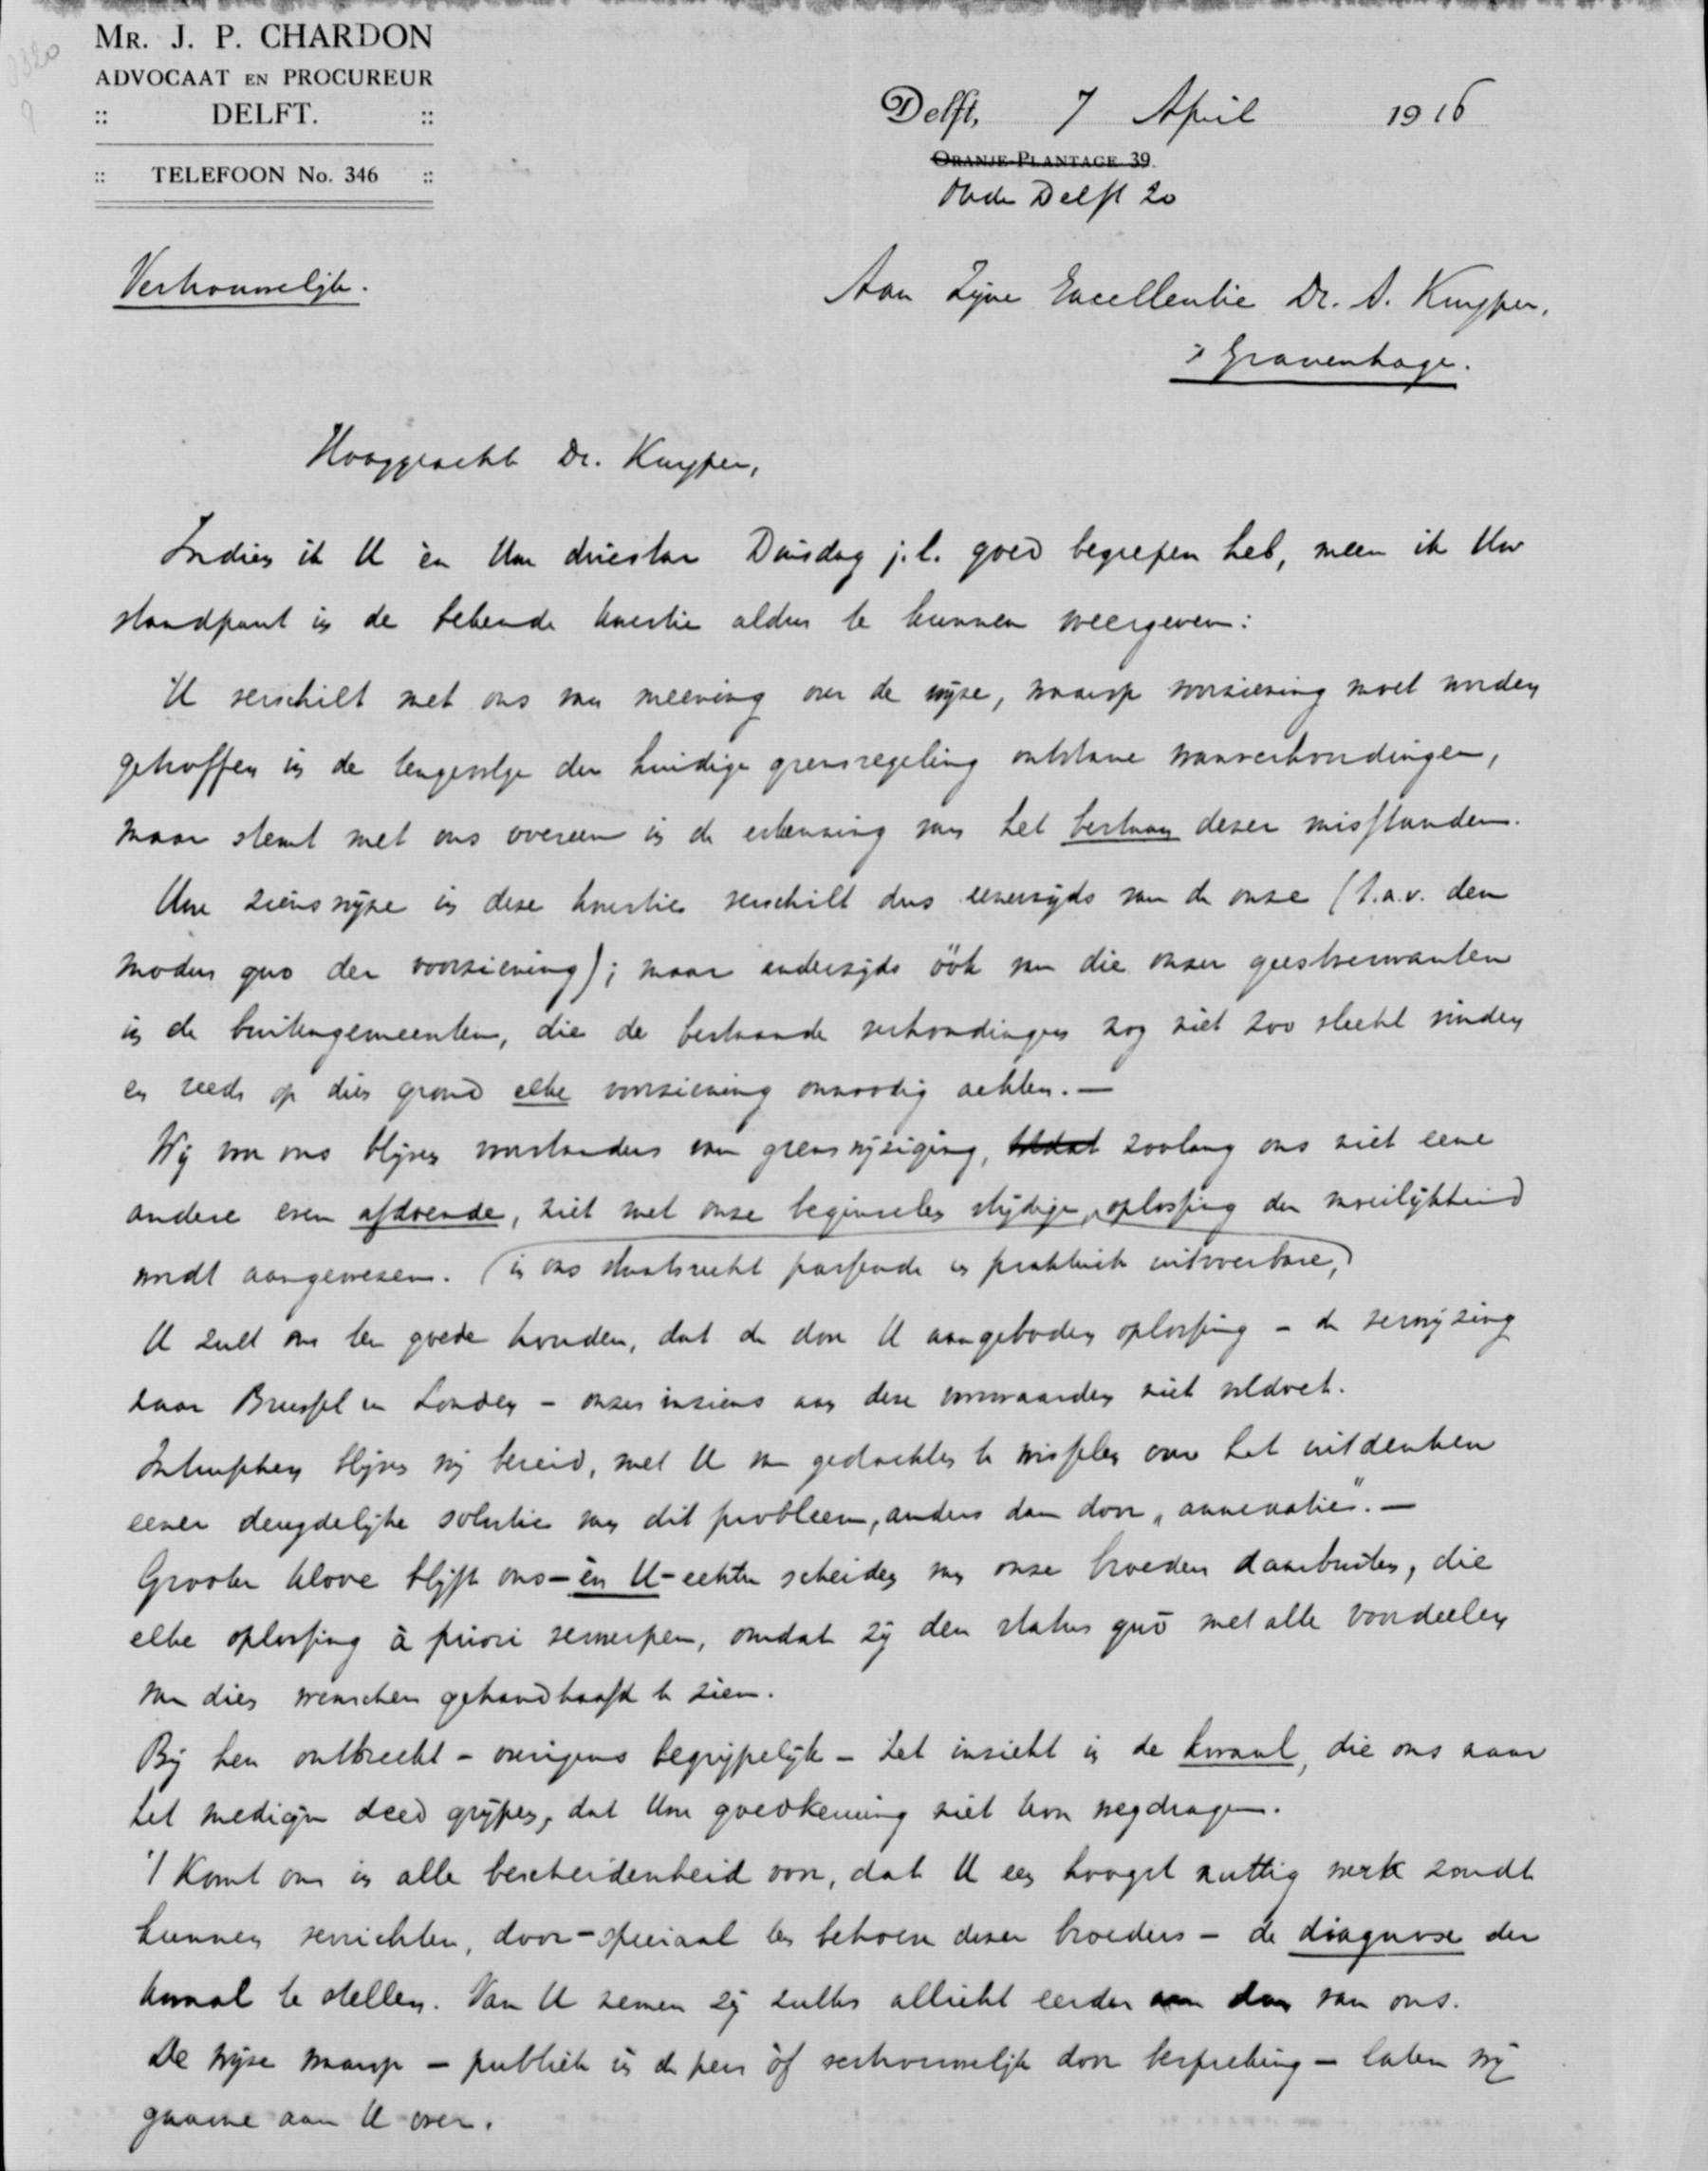 MR. J. P. CHARDON
ADVOCAAT EN PROCUREUR
:: DELFT. ::
:: TELEFOON No. 346 ::
Delft, 7 April 1916
ORANJE-PLANTAGE 39.
Oude Delft 20
Vertrouwelijk.
Aan Zijne Excellentie Dr. A. Kuyper,
's Gravenhage.
Hooggeacht Dr. Kuyper,
Indien ik U en Uw driestar Dinsdag j.l. goed begrepen heb, meen ik Uw
standpunt in de bekende kwestie aldus te kunnen weergeven:
U verschilt met ons van meening over de wijze, waarop voorziening moet worden
getroffen in de tengevolge der huidige grensregeling ontstane wanverhoudingen,
maar stemt met ons overeen in de erkenning van het bestaan dezer misstanden.
Uwe zienswijze in deze kwestie verschilt dus eenerzijds van de onze (t.a.v. den
modus quo der voorziening); maar anderzijds óók van die onzer geestverwanten
in de buitengemeenten, die de bestaande verhoudingen nog niet zoo slecht vinden
en reeds op dien grond elke voorziening onnoodig achten. —
Wij voor ons blijven voorstanders van grenswijziging, zoolang ons niet eene
andere even afdoende, niet met onze beginselen strijdige, oplossing der moeilijkheid
wordt aangewezen. (in ons staatsrecht passende en praktisch uitvoerbare,)
U zult ons ten goede houden, dat de door U aangeboden oplossing - de verwijzing
naar Brussel en Londen - onzes inziens aan deze voorwaarden niet voldoet.
Intusschen blijven wij bereid, met U van gedachten te wisselen over het uitdenken
eener deugdelijke solutie van dit probleem, anders dan door "annexatie". —
Grooter klove blijft ons - en U - echter scheiden van onze broeders daarbuiten, die
elke oplossing à priori verwerpen, omdat zij den status quo met alle voordeelen
van dien wenschen gehandhaafd te zien.
Bij hen ontbreekt - overigens begrijpelijk - het inzicht in de kwaal, die ons naar
het medicijn deed grijpen, dat Uw goedkeuring niet kon wegdragen.
't Komt ons in alle bescheidenheid voor, dat U een hoogst nuttig werk zoudt
kunnen verrichten, door - speciaal ten behoeve dezer broeders - de diagnose der
kwaal te stellen. Van U nemen zij zulks allicht eerder aan dan van ons.
De wijze waarop - publiek in de pers òf vertrouwelijk door bespreking - laten wij
gaarne aan U over.